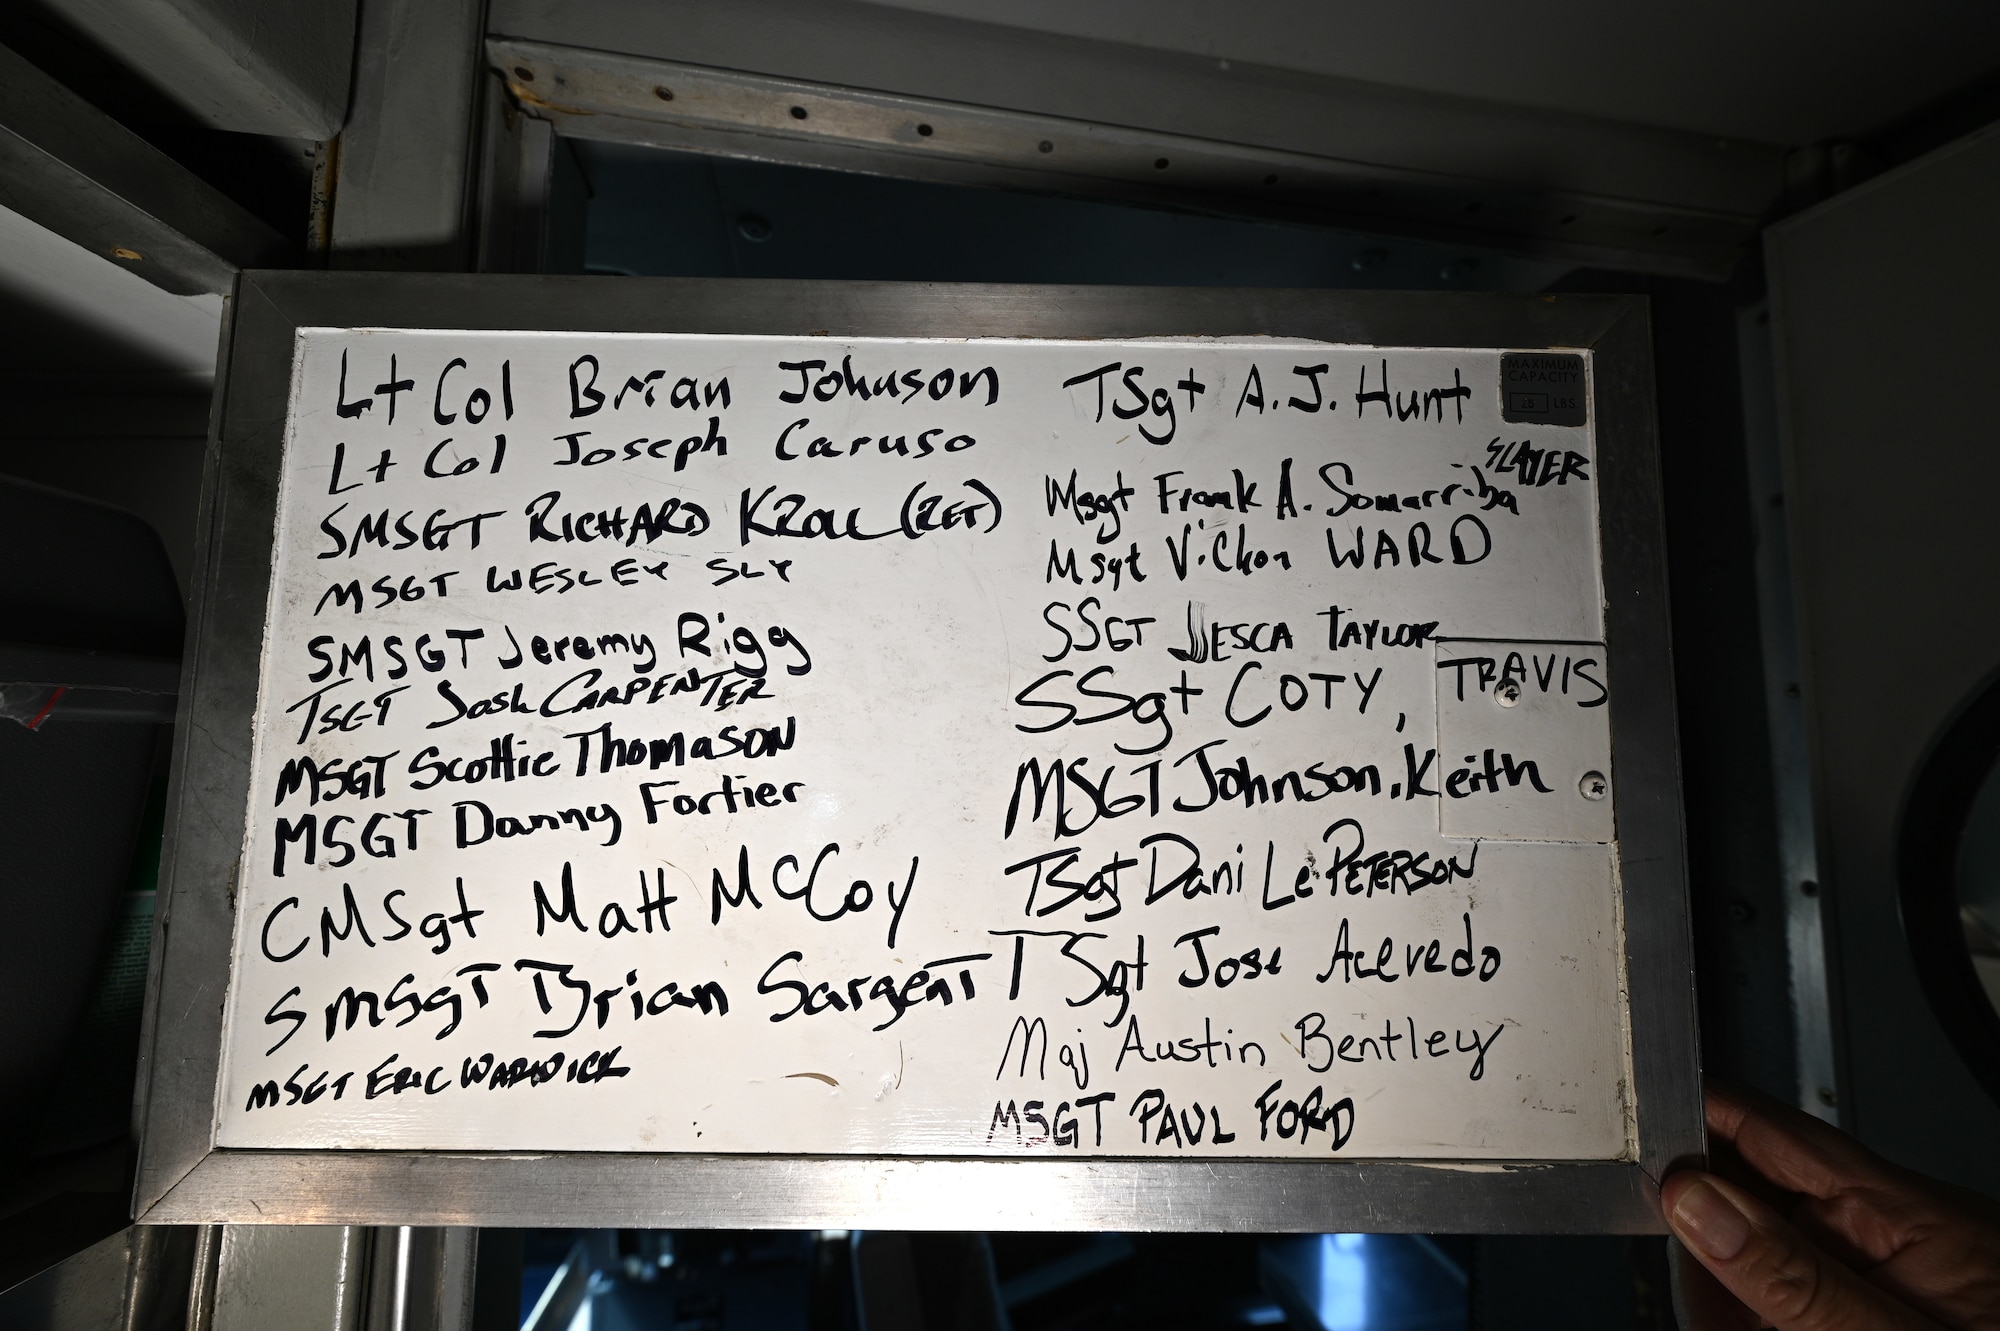 Lt Col Brian Johnson
Lt Col Joseph Caruso
SMSGT RICHARD KROLL (RET)
MSGT WESLEY SLY
SMSGT Jeremy Rigg
TSGT Josh CARPENTER
MSGT Scottie Thomason
MSGT Danny Fortier
CMSgt Matt McCoy
SmSgT Brian SargenT
MSGT ERIC WARWICK
TSgt A.J. Hunt
MAXIMUM
CAPACITY
LBS.
SLAYER
Msgt Frank A. Somarriba
Msgt WARD
SSGT JESCA TAYLOR
SSgt COTY, TRAVIS
MSGT Johnson, Keith
TSgt Dani LePETERSON
TSgt Jose Acevedo
Maj Austin Bentley
MSGT PAUL FORD